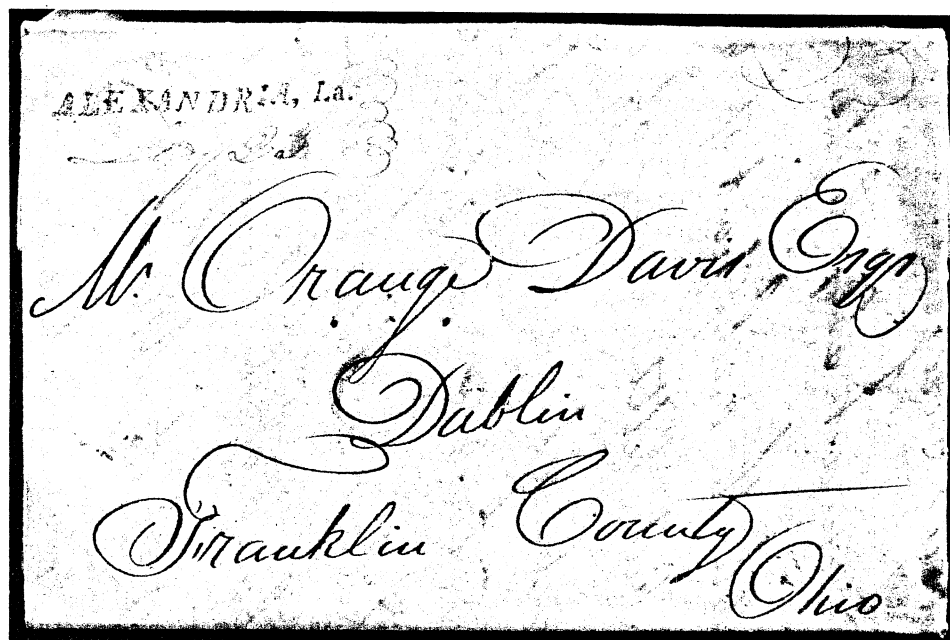 ALEXANDRIA, La.
M. Orange Davis Esqr
Dablin
Franklin County
Ohio